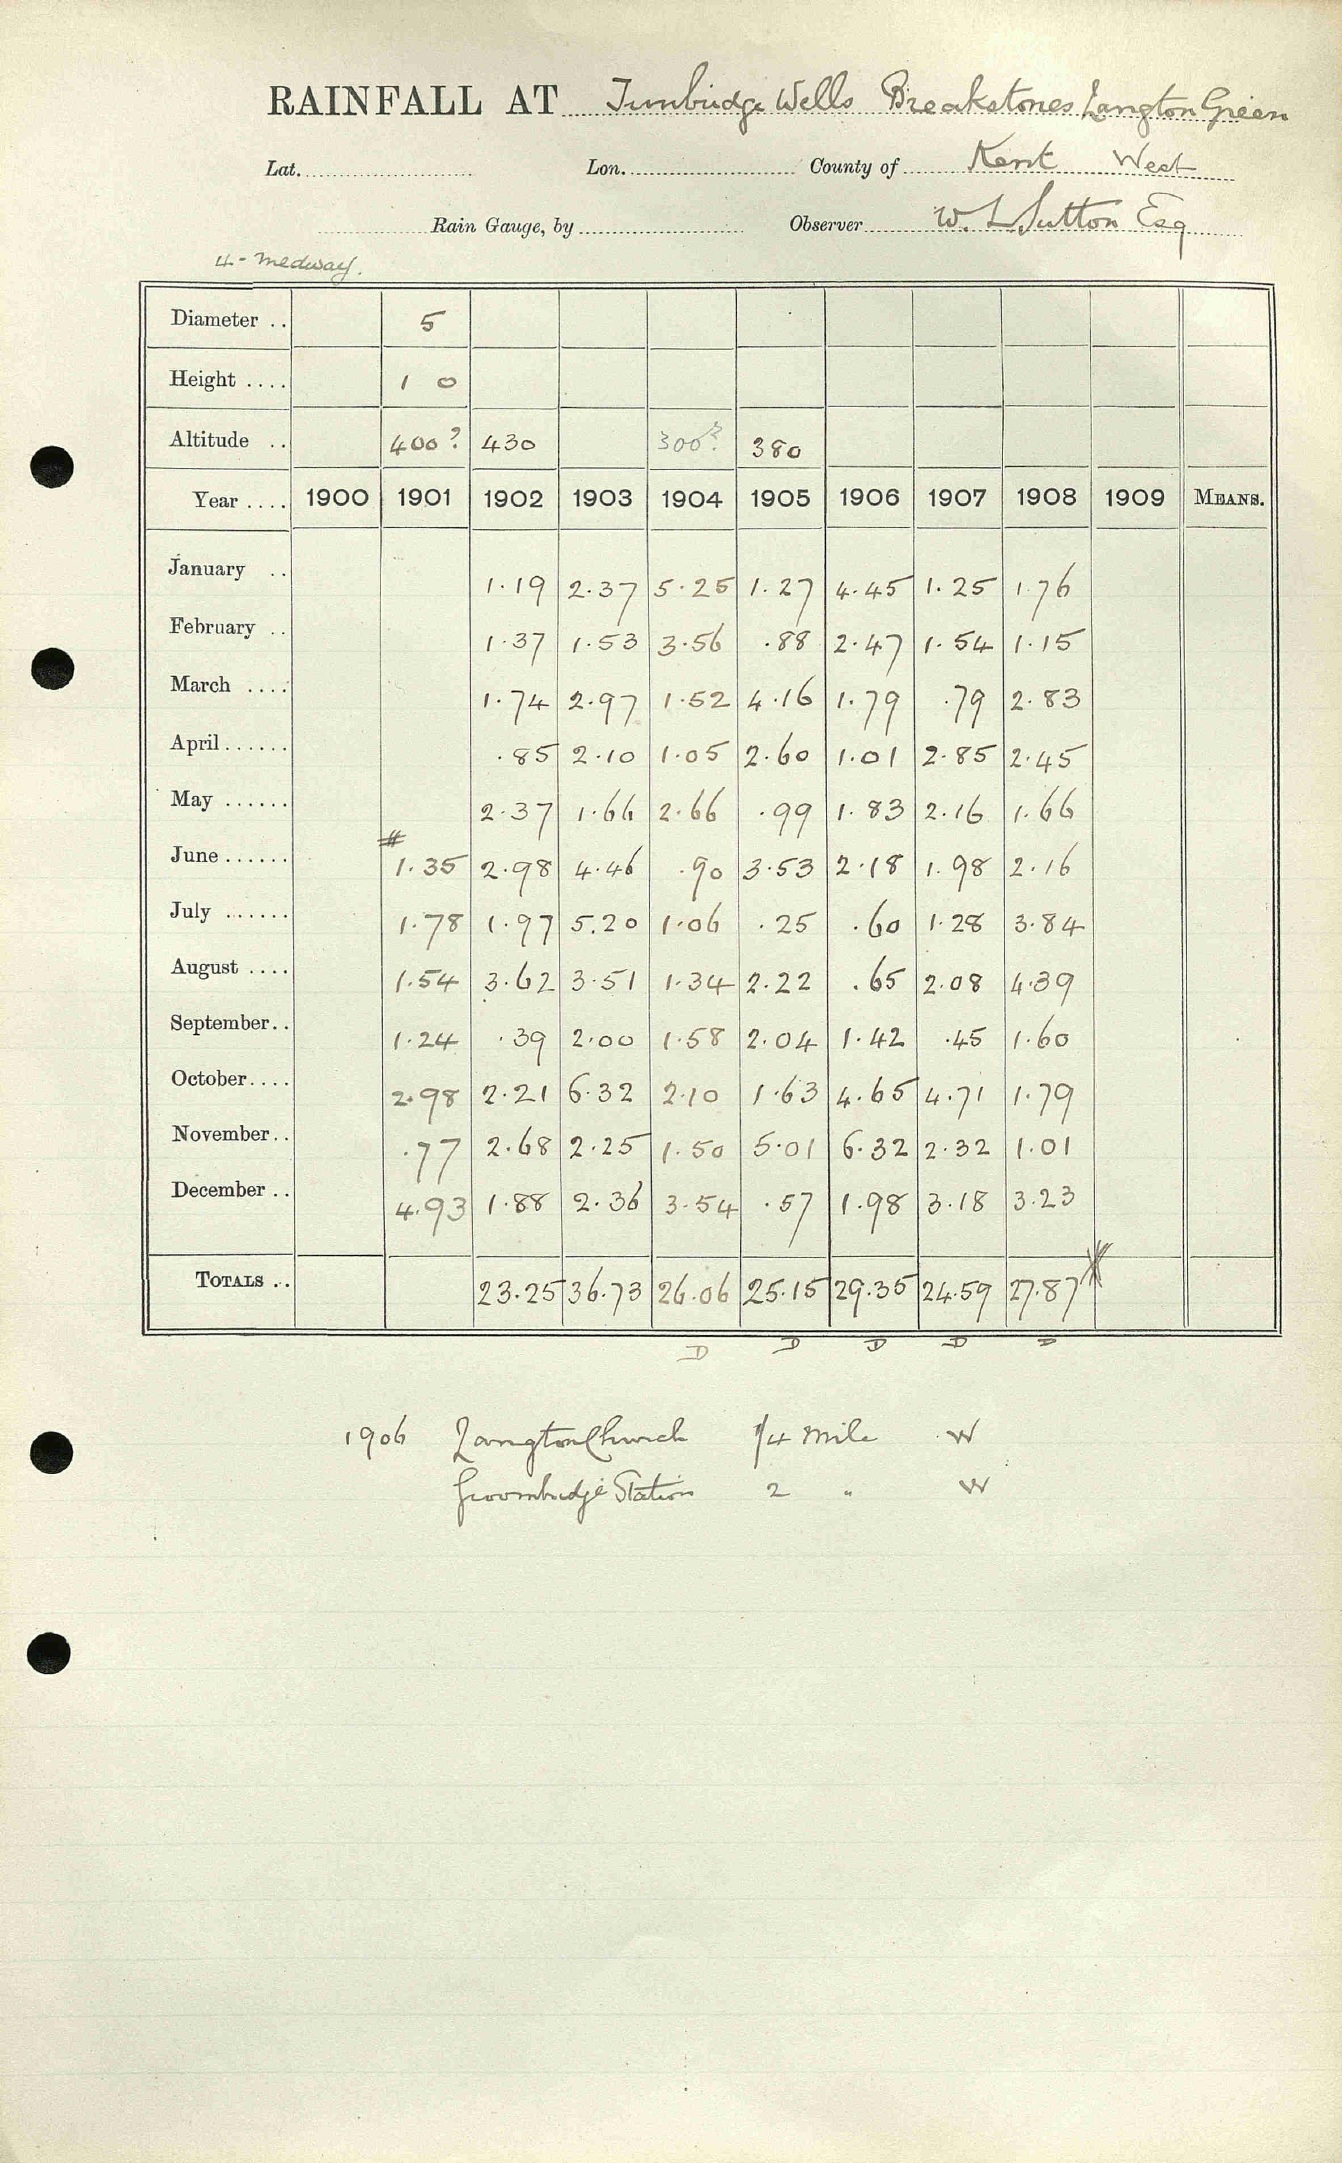 RAINFALL AT Tunbridge Wells Breakstones Langton Green
Lat. Lon. County of Kent West
Rain Gauge, by Observer W. L Sutton Esq
4 - Medway.
Diameter .. 5
Height .... 1 0
Altitude .. 400? 430 300? 380
Year .... 1900 1901 1902 1903 1904 1905 1906 1907 1908 1909 MEANS.
January .. 1.19 2.37 5.25 1.27 4.45 1.25 1.76
February .. 1.37 1.53 3.56 .88 2.47 1.54 1.15
March .... 1.74 2.97 1.52 4.16 1.79 .79 2.83
April ...... .85 2.10 1.05 2.60 1.01 2.85 2.45
May ...... 2.37 1.66 2.66 .99 1.83 2.16 1.66
June ...... # 1.35 2.98 4.46 .90 3.53 2.18 1.98 2.16
July ...... 1.78 1.97 5.20 1.06 .25 .60 1.28 3.84
August .... 1.54 3.62 3.51 1.34 2.22 .65 2.08 4.39
September.. 1.24 .39 2.00 1.58 2.04 1.42 .45 1.60
October.... 2.98 2.21 6.32 2.10 1.63 4.65 4.71 1.79
November.. .77 2.68 2.25 1.50 5.01 6.32 2.32 1.01
December .. 4.93 1.88 2.36 3.54 .57 1.98 3.18 3.23
TOTALS .. 23.25 36.73 26.06 25.15 29.35 24.59 27.87
D D D D D
1906 Langton Church 1/4 Mile W
Groombridge Station 2 " W